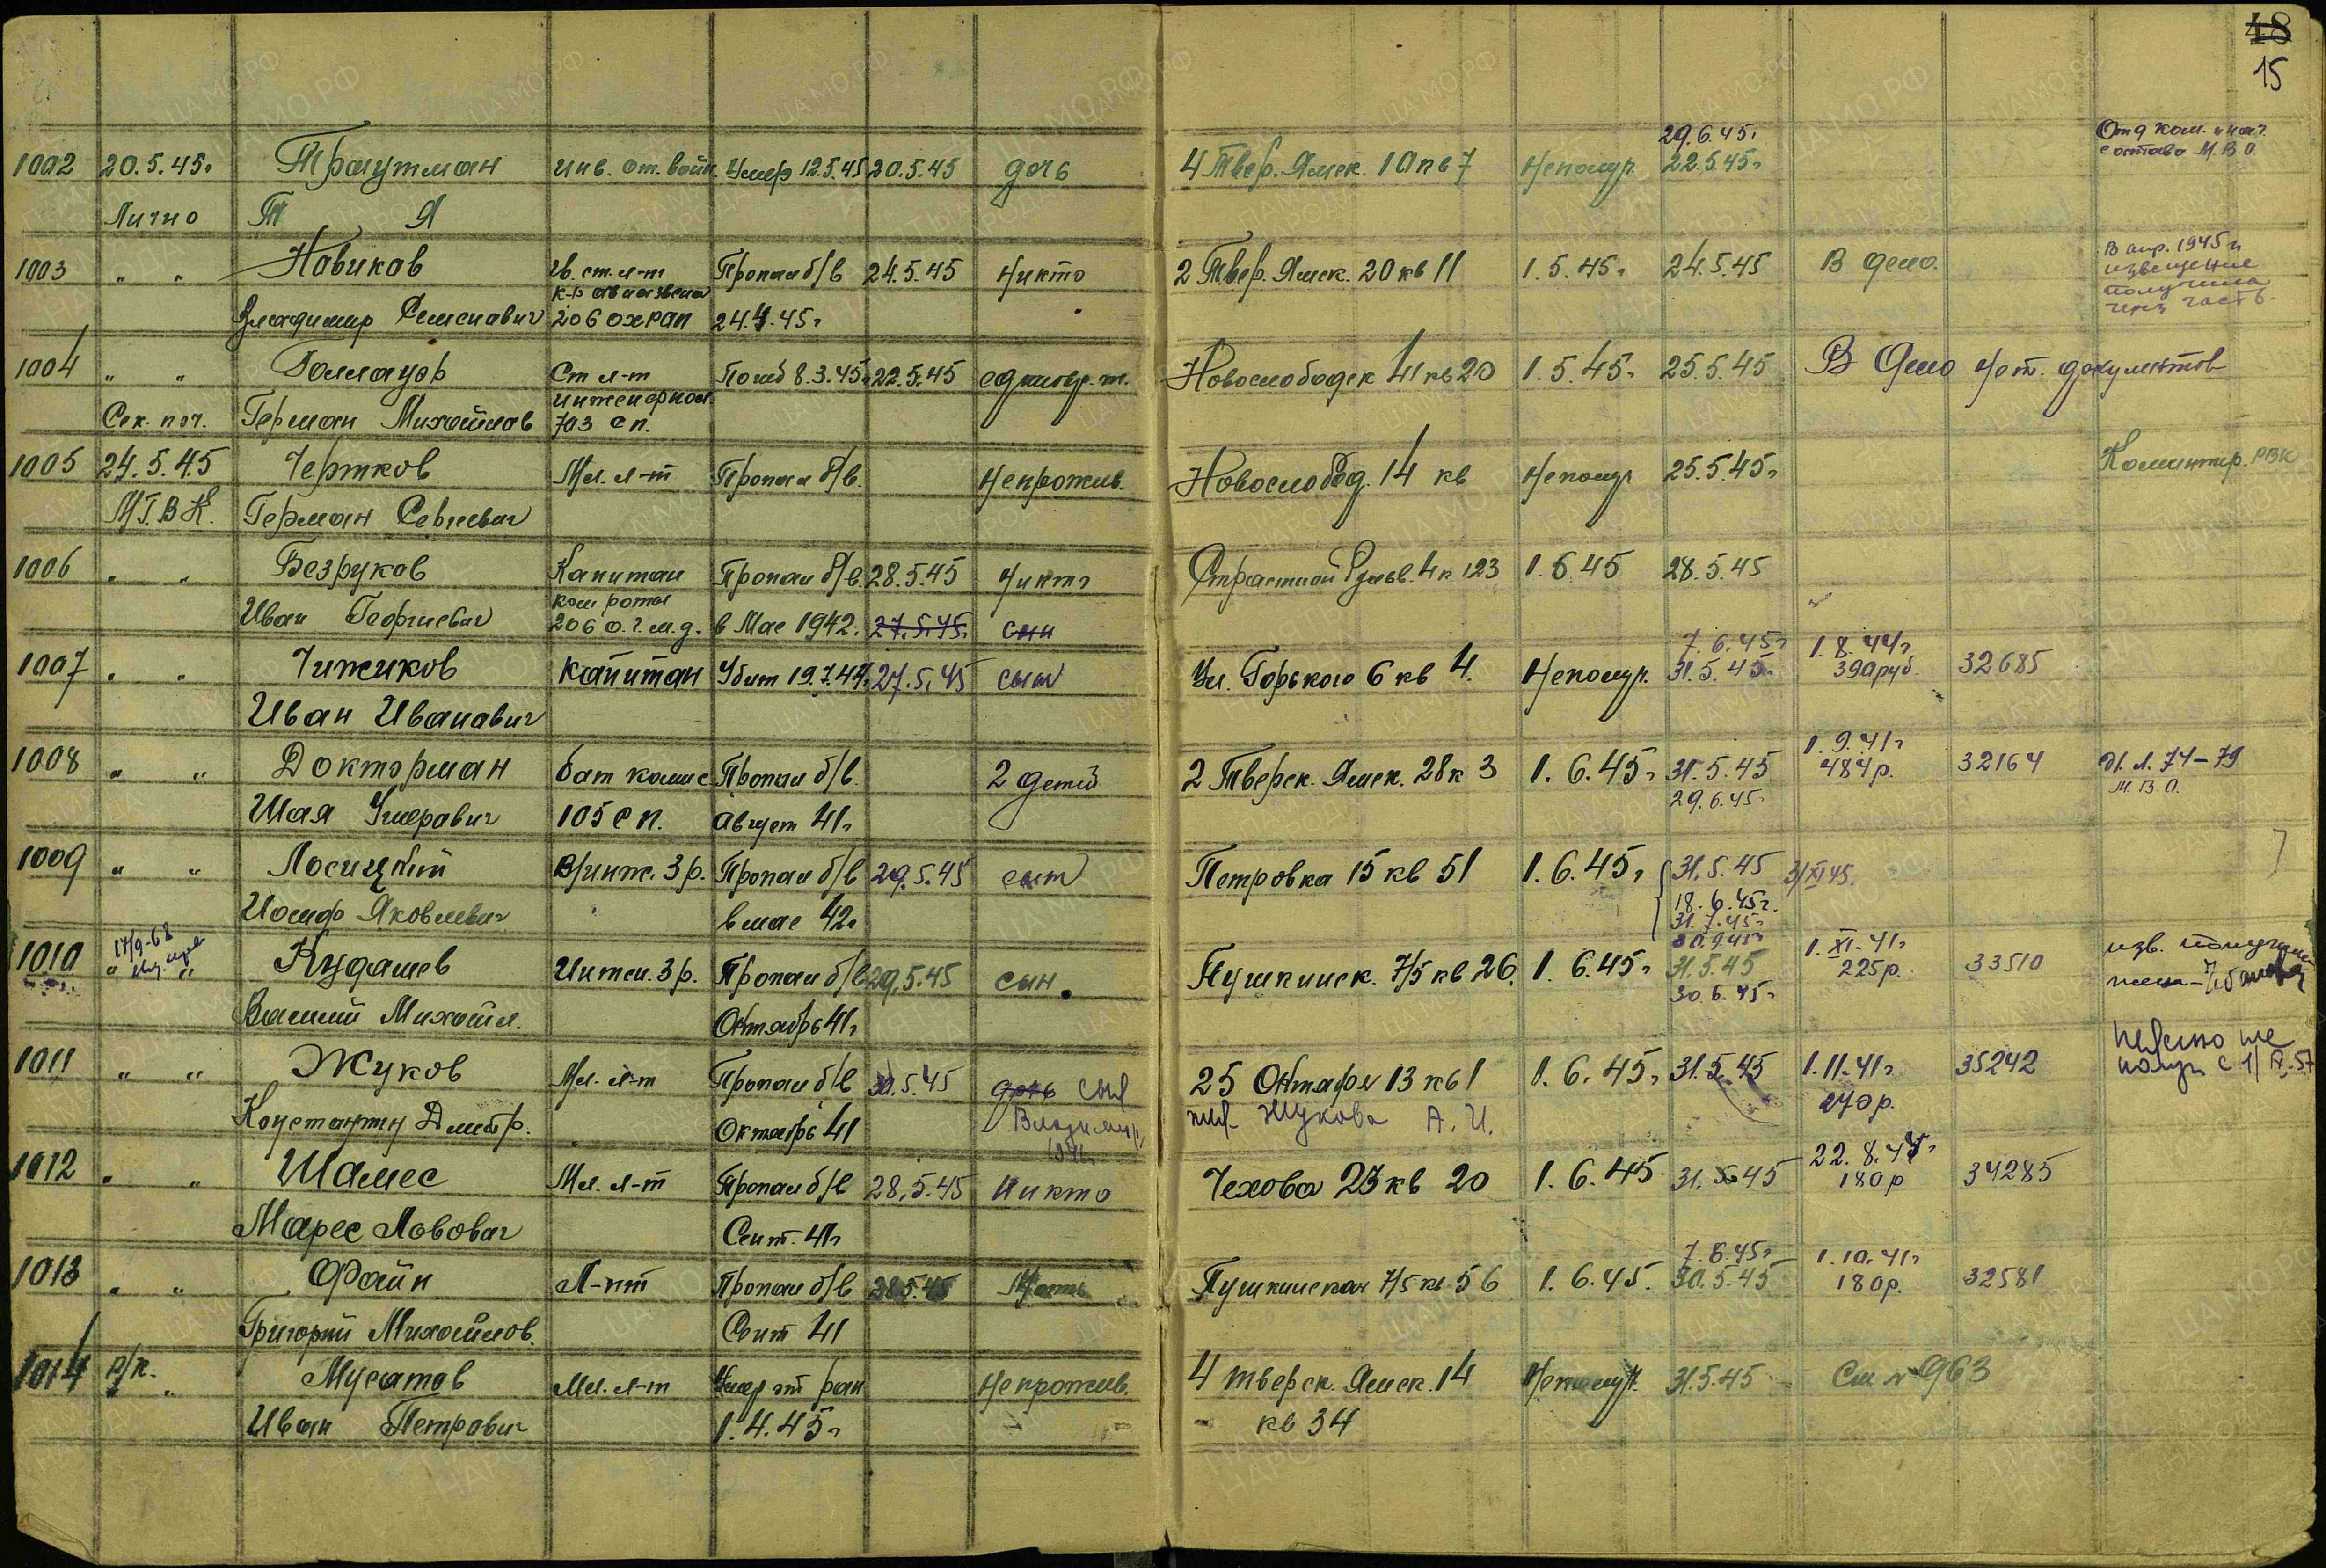 48
15
29.6.45г
Отд ком. и нач.
1002 20.5.45г Траутман инв. от. войн. Умер 12.5.45 20.5.45 дочь 4 Твер. Ямск. 10 кв 7 Неполуч. 22.5.45г состава М.В.О.
Лично Т Я
В апр. 1945г
1003 " " Новиков гв. ст. л-т Пропал б/в 24.5.45 никто 2 Твер. Ямск. 20 кв 11 1.5.45г 24.5.45 В дело. извещение
к-р авиазвена получила
Владимир Семенович 206 24.4.45г через часть.
1004 " " Ст л-т Погиб 8.3.45г 22.5.45 Новослободск 41 кв 20 1.5.45г 25.5.45 В дело нет. документов
Сек. поч. Герман Михайлов 703 сп.
1005 24.5.45 Чертков Мл. л-т Пропал б/в. Непрожив. Новослобод. 14 кв Неполуч 25.5.45г Коминтер. РВК
М.Г.В.К. Герман Сергеевич
1006 " " Безруков Капитан Пропал б/в. 28.5.45 никто Страстной бульв. 4 к 123 1.6.45 28.5.45
ком роты
Иван Георгиевич 206 в Мае 1942. 27.5.45. сын
7.6.45г 1.8.44г
1007 " " Чижиков капитан Убит 19.7.44г 27.5.45 сын Ул. Горького 6 кв 4. Неполуч. 31.5.45г 390 руб. 32685
Иван Иванович
1.9.41г
1008 " " Докторман бат комис Пропал б/в. 2 детей 2 Тверск. Ямск. 28 к 3 1.6.45г 31.5.45 484 р. 32164 л. 74-79
М.В.О.
Шая Умерович 105 сп. август 41г 29.6.45г
1009 " " Лосицкий В/инж. 3 р. Пропал б/в 29.5.45 сын Петровка 15 кв 51 1.6.45г 31.5.45 3/XI 45.
Иосиф Яковлевич в мае 42г 18.6.45г.
31.7.45г
17/9-68 1.XI.41г изв. получила
1010 " " Кудашев Интен. 3 р. Пропал б/в 29.5.45 сын. Пушкинск. 7/5 кв 26. 1.6.45г 31.5.45 225 р. 33510 жена
30.6.45г
Василий Михайл. Октябрь 41г
1011 " " Жуков Мл. л-т Пропал б/в 30.5.45 дочь сын 25 Октября 13 кв 1 1.6.45г 31.5.45 1.11.41г 35242 пенсию не
270 р.
Константин Дмитр. Октябрь 41 Владимир Жукова А.И.
22.8.44г
1012 " " Шамес Мл. л-т Пропал б/в 28.5.45 Никто Чехова 23 кв 20 1.6.45 31.5.45 180 р 34285
Марес Львович Сент. 41г
7.6.45г 1.10.41г
1013 " " Файн Л-нт Пропал б/в 28.5.45 Мать Пушкинская 7/5 кв 56 1.6.45. 30.5.45 180 р. 32581
Григорий Михайлов. Сент 41
1014 Мусатов Мл. л-т Умер от ран Непрожив. 4 тверск. Ямск. 14 Неполуч. 31.5.45 См. № 963
Иван Петрович 1.4.45г кв 34